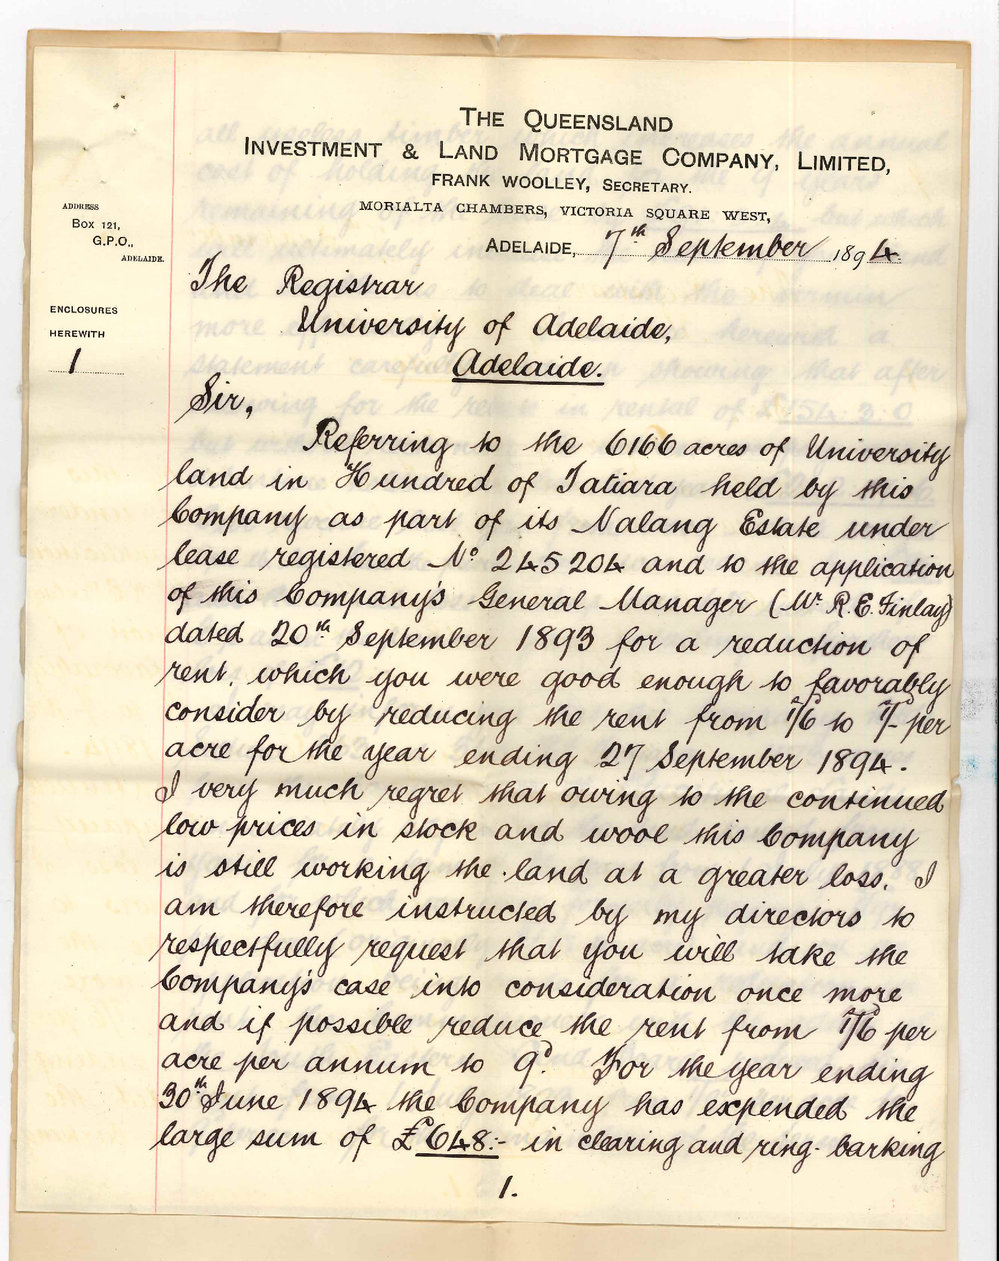 THE QUEENSLAND
INVESTMENT & LAND MORTGAGE COMPANY, LIMITED,
FRANK WOOLLEY, SECRETARY.
MORIALTA CHAMBERS, VICTORIA SQUARE WEST,
ADDRESS
BOX 121,
G.P.O.,
ADELAIDE.
ADELAIDE, 7th September 1894.
ENCLOSURES
HEREWITH
1
The Registrar
University of Adelaide,
Adelaide.
Sir,
Referring to the 6166 acres of University
land in Hundred of Tatiara held by this
Company as part of its Nalang Estate under
lease registered No 245204 and to the application
of this Company's General Manager (Mr R.E. Finlay)
dated 20th September 1893 for a reduction of
rent, which you were good enough to favorably
consider by reducing the rent from 1/6 to 1/- per
acre for the year ending 27 September 1894.
I very much regret that owing to the continued
low prices in stock and wool this Company
is still working the land at a greater loss. I
am therefore instructed by my directors to
respectfully request that you will take the
Company's case into consideration once more
and if possible reduce the rent from 1/6 per
acre per annum to 9d. For the year ending
30th June 1894 the Company has expended the
large sum of £648:- in clearing and ring-barking
1.